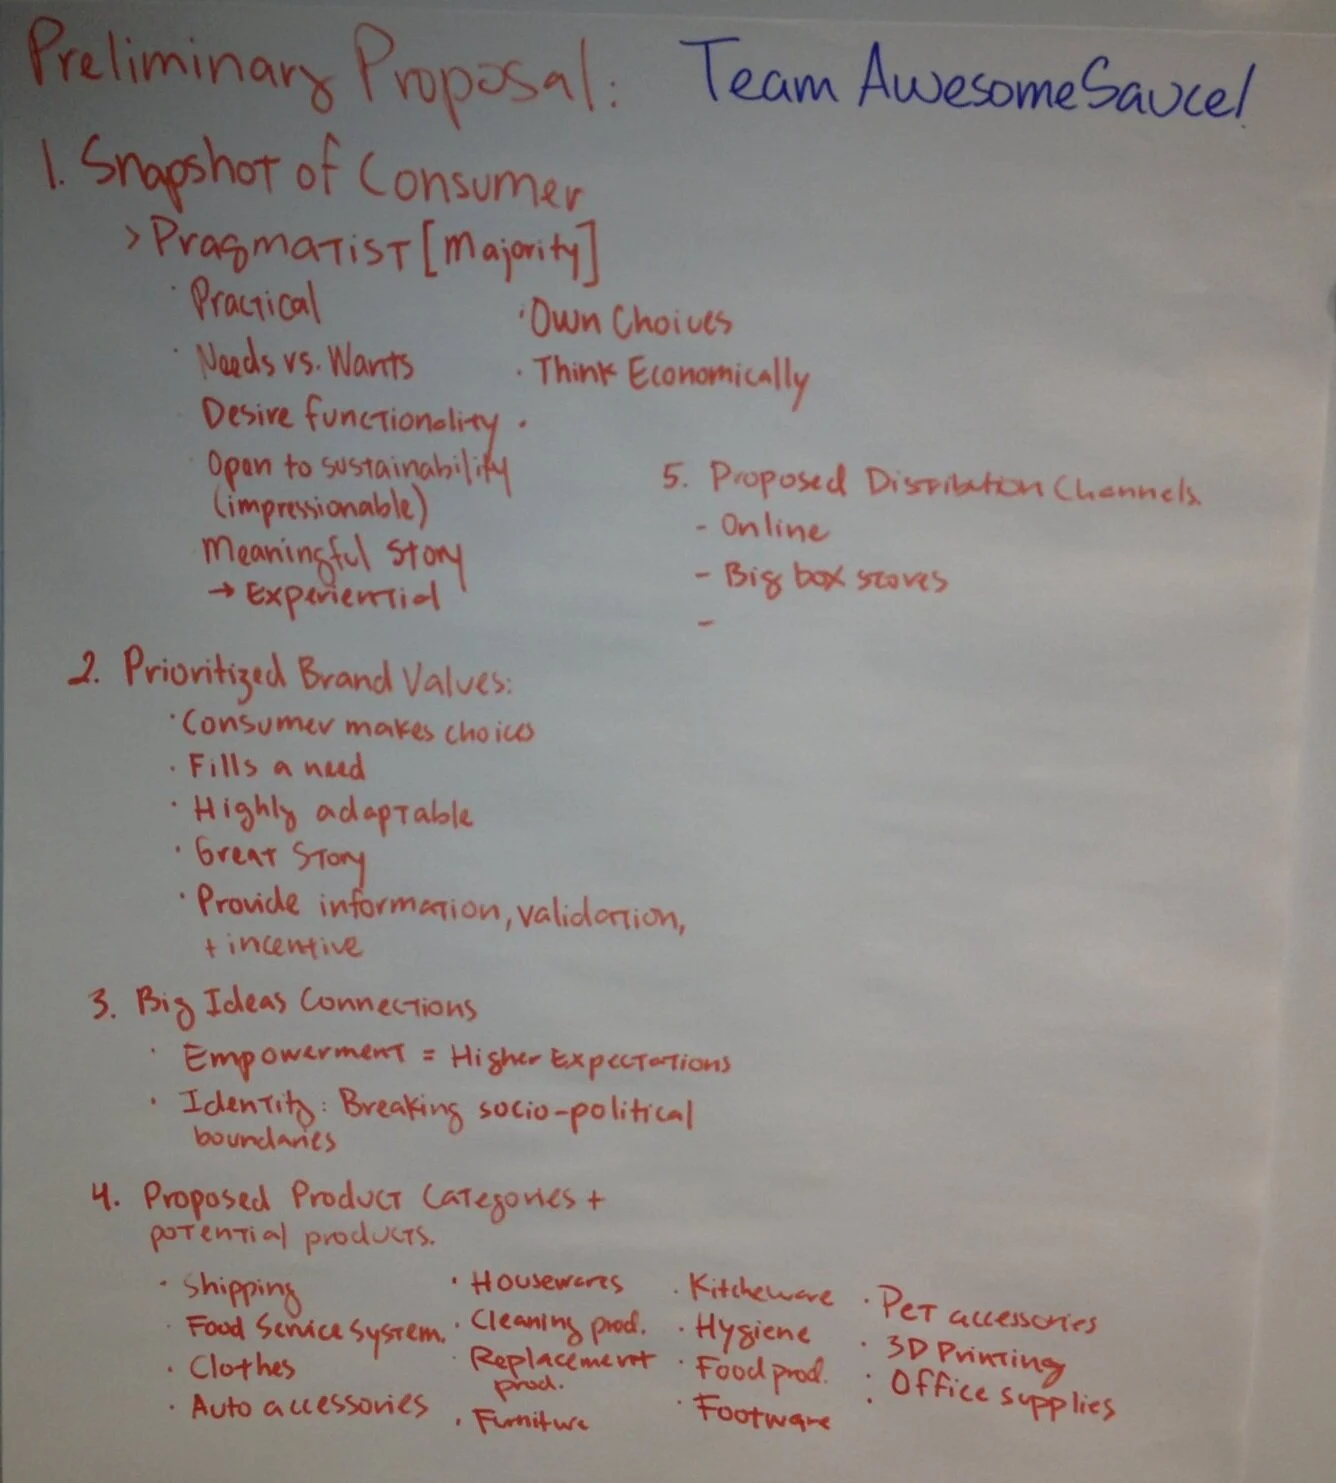 Preliminary Proposal: Team AwesomeSauce!
1. Snapshot of Consumer
> Pragmatist [Majority]
· Practical
· Needs vs. Wants
Desire functionality
· Open to sustainability
(impressionable)
Meaningful Story
→ Experiential
· Own Choices
· Think Economically
·
5. Proposed Distribution Channels.
- Online
- Big box stores
-
2. Prioritized Brand Values:
· Consumer makes choices
· Fills a need
· Highly adaptable
· Great Story
· Provide information, validation,
+ incentive
3. Big Ideas Connections
· Empowerment = Higher Expectations
· Identity: Breaking socio-political
boundaries
4. Proposed Product Categories +
potential products.
· Shipping
· Food Service System.
· Clothes
· Auto accessories
· Housewares
· Cleaning prod.
· Replacement
prod.
· Furniture
· Kitcheware
· Hygiene
· Food prod.
· Footware
· Pet accessories
· 3D Printing
· Office supplies
·